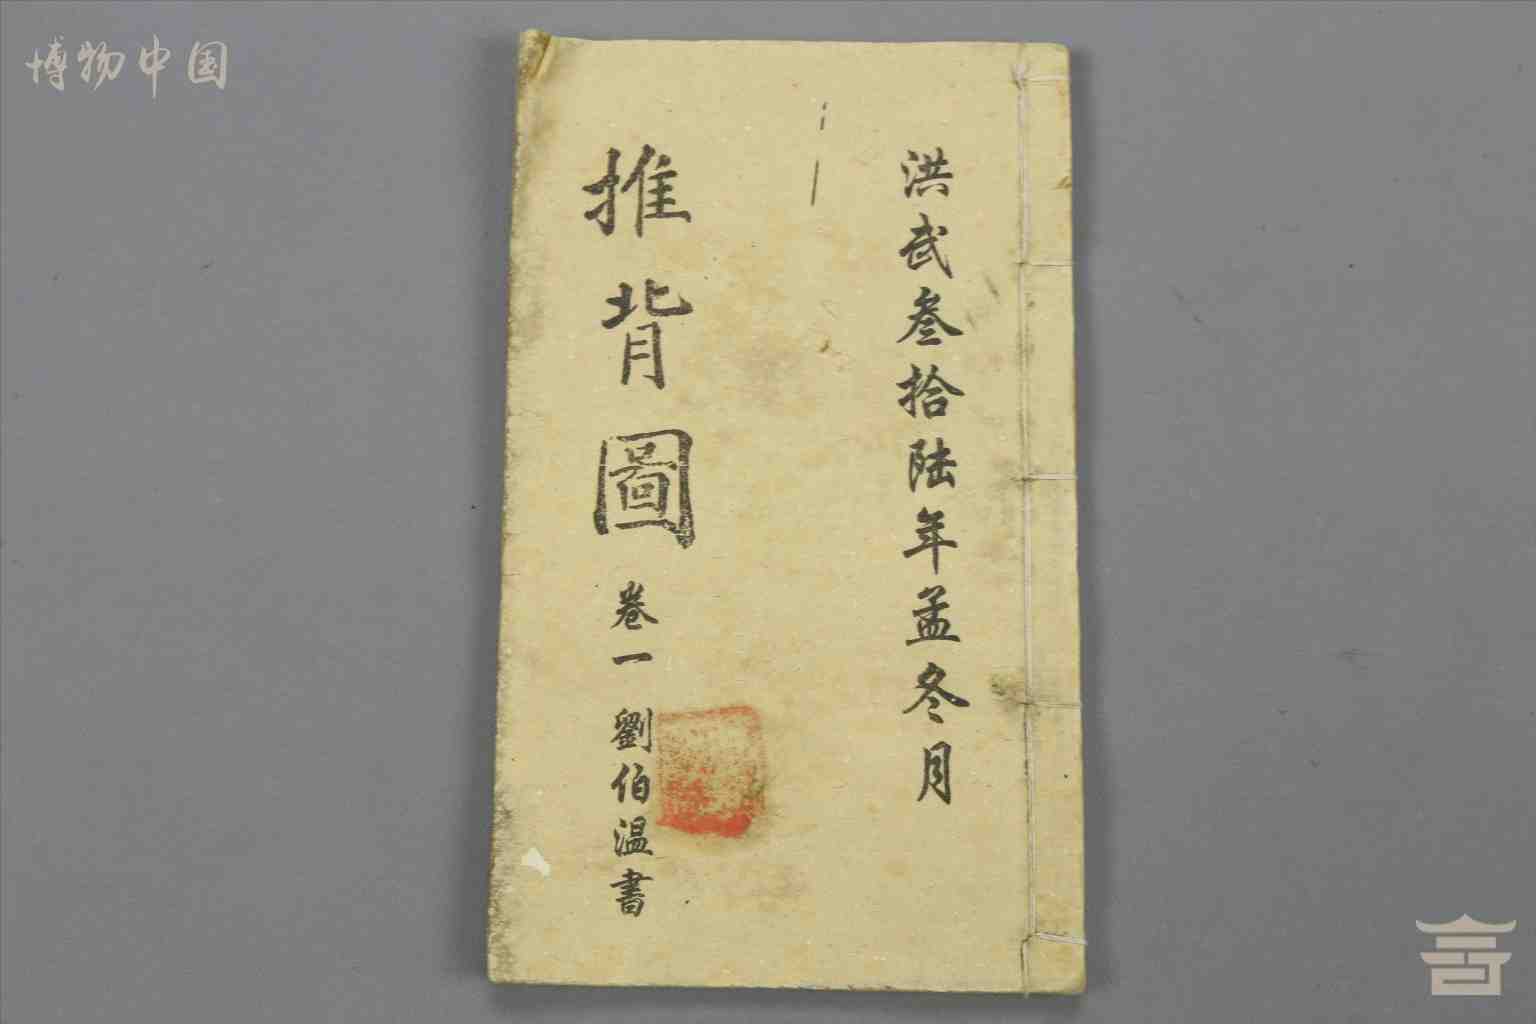 博物中国
洪武叁拾陆年孟冬月
推背圖 卷一 劉伯溫書